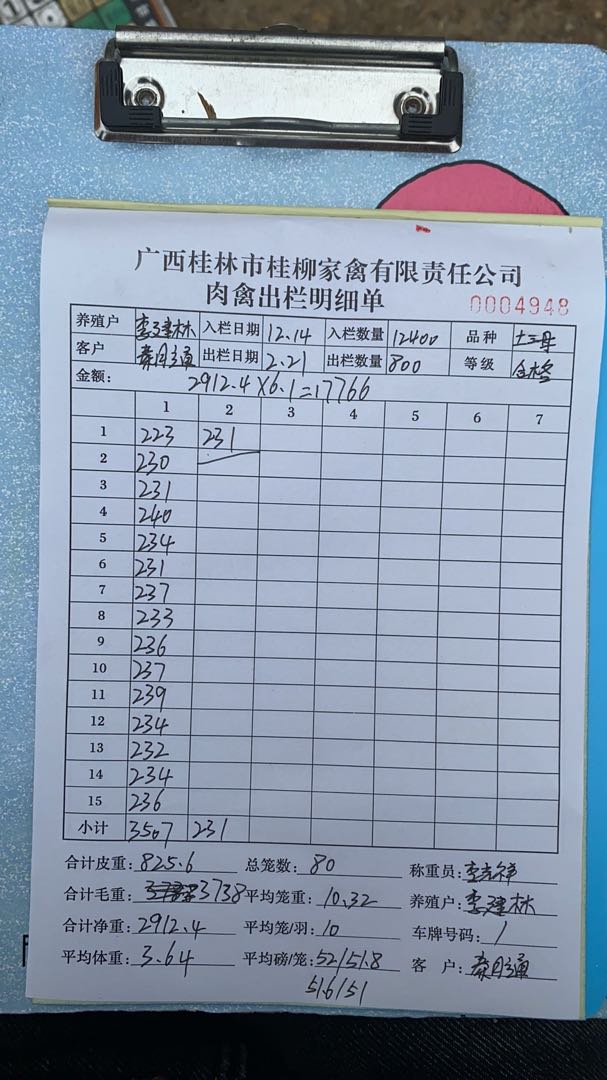 广西桂林市桂柳家禽有限责任公司
肉禽出栏明细单
0004948
养殖户 李建林 入栏日期 12.14 入栏数量 12400 品种 土二母
客户 秦月通 出栏日期 2.21 出栏数量 800 等级 合格
金额: 2912.4×6.1=17766
1 2 3 4 5 6 7
1 223 231
2 230
3 231
4 240
5 234
6 231
7 237
8 233
9 236
10 237
11 239
12 234
13 232
14 234
15 236
小计 3507 231
合计皮重: 825.6 总笼数: 80 称重员: 李吉祥
合计毛重: 3738 平均笼重: 10.32 养殖户: 李建林
合计净重: 2912.4 平均笼/羽: 10 车牌号码: /
平均体重: 3.64 平均磅/笼: 52/51.8 客 户: 秦月通
51.6/51